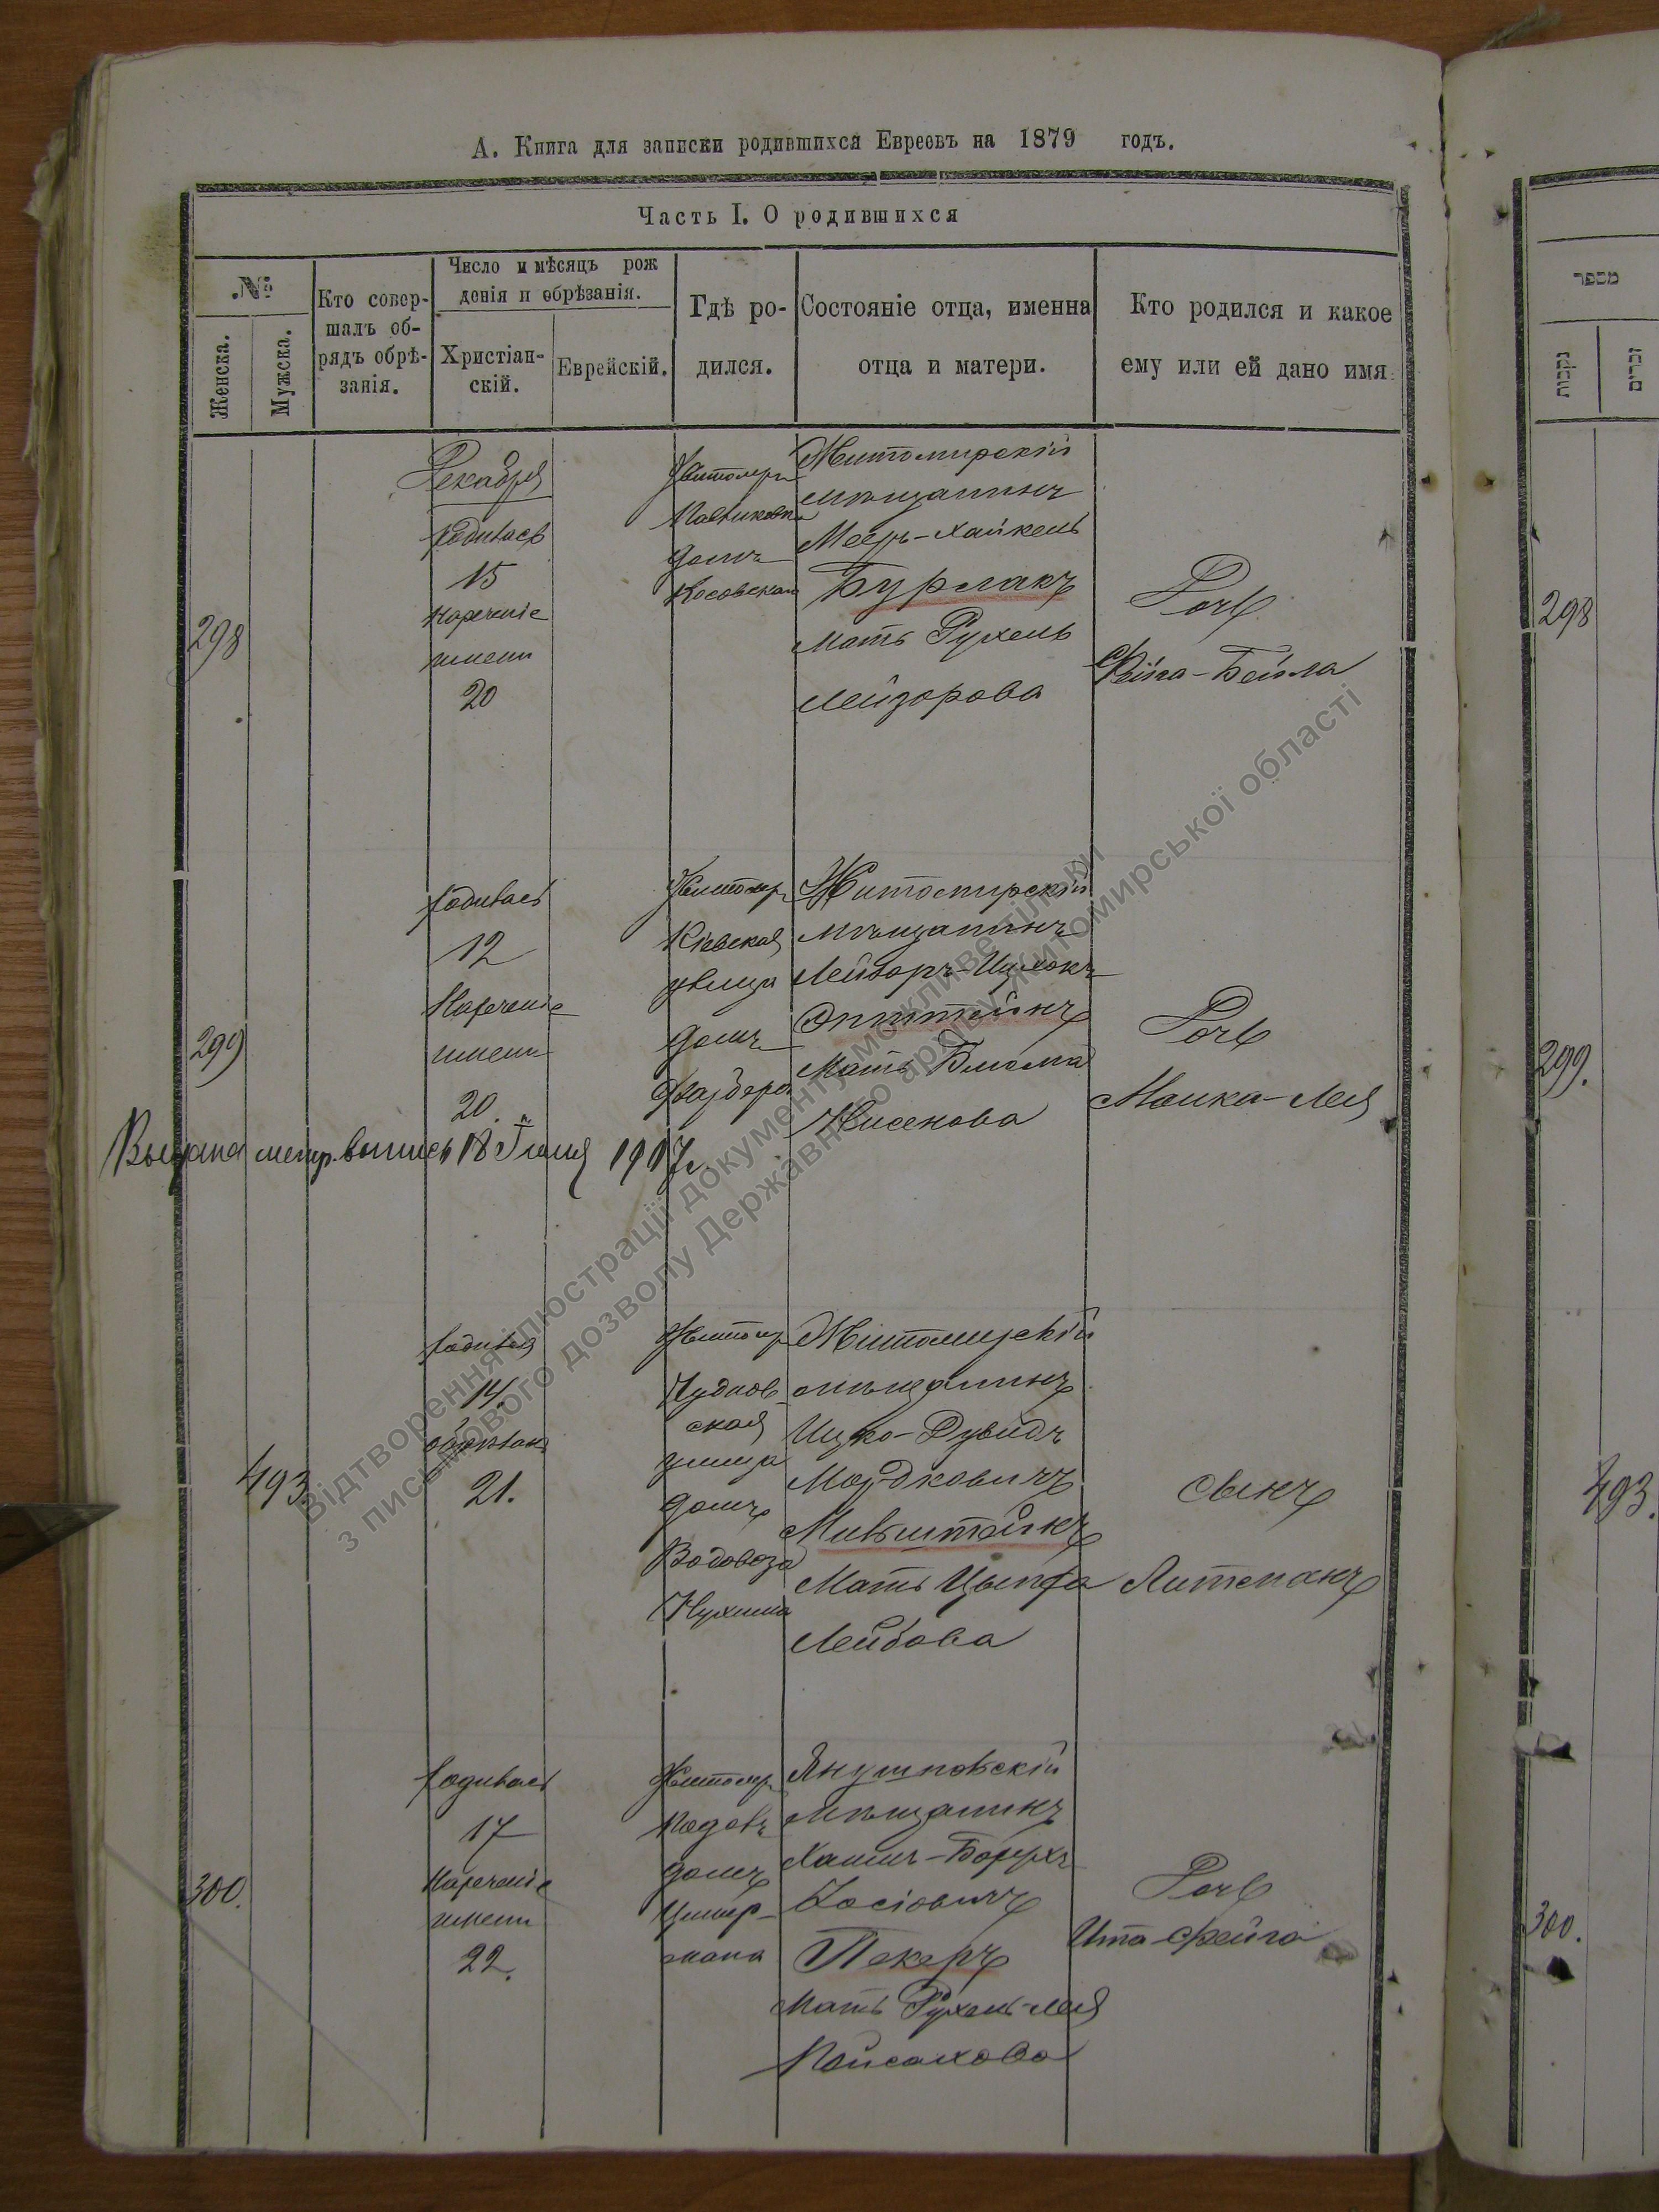 А. Книга для записки родившихся Евреевъ на 1879 годъ.
Часть I. О родившихся
№
Женска.
Мужска.
Кто совер-
шалъ об-
рядъ обрѣ-
занія.
Число и мѣсяцъ рож
денія и обрѣзанія.
Христіан-
скій.
Еврейскій.
Гдѣ ро-
дился.
Состояніе отца, именна
отца и матери.
Кто родился и какое
ему или ей дано имя.
298
Декабря
родилась
15
Нареченіе
имени
20
Житомиръ
домъ
Житомирскій
мѣщанинъ
Мееръ-Хайкель
Бурлакъ
Мать Рухель
Лейзорова
Дочь
Фейга-Бейла
299
родилась
12
Нареченіе
имени
20.
Житомир
Кіевская
улица
домъ
Житомирскій
мѣщанинъ
Лейзоръ-Ицхокъ
Эпштейнъ
Мать Блюма
Нисенова
Дочь
Малка-Лея
Выдана метр. выпись 18 Іюля 1907 г.
493.
родился
14.
обрѣзанъ
21.
Житомир
Чуднов
ская
улица
домъ
Водовоза
Нухима
Житомирскій
мѣщанинъ
Ицко-Дувидъ
Мордковичъ
Мильштейнъ
Мать Ципра
Лейбова
Сынъ
Литманъ
300.
родилась
17
Нареченіе
имени
22.
Житомир
домъ
Цимер-
мана
Янушпольскій
мѣщанинъ
Хаимъ-Борухъ
Іосіовичъ
Пекеръ
Мать Рухель-Лея
Пейсахова
Дочь
Ита-Фейга
מספר
נקבות
זכרים
298
299.
493.
300.
Відтворення ілюстрації документу можливе тільки
з письмового дозволу Державного архіву Житомирської області